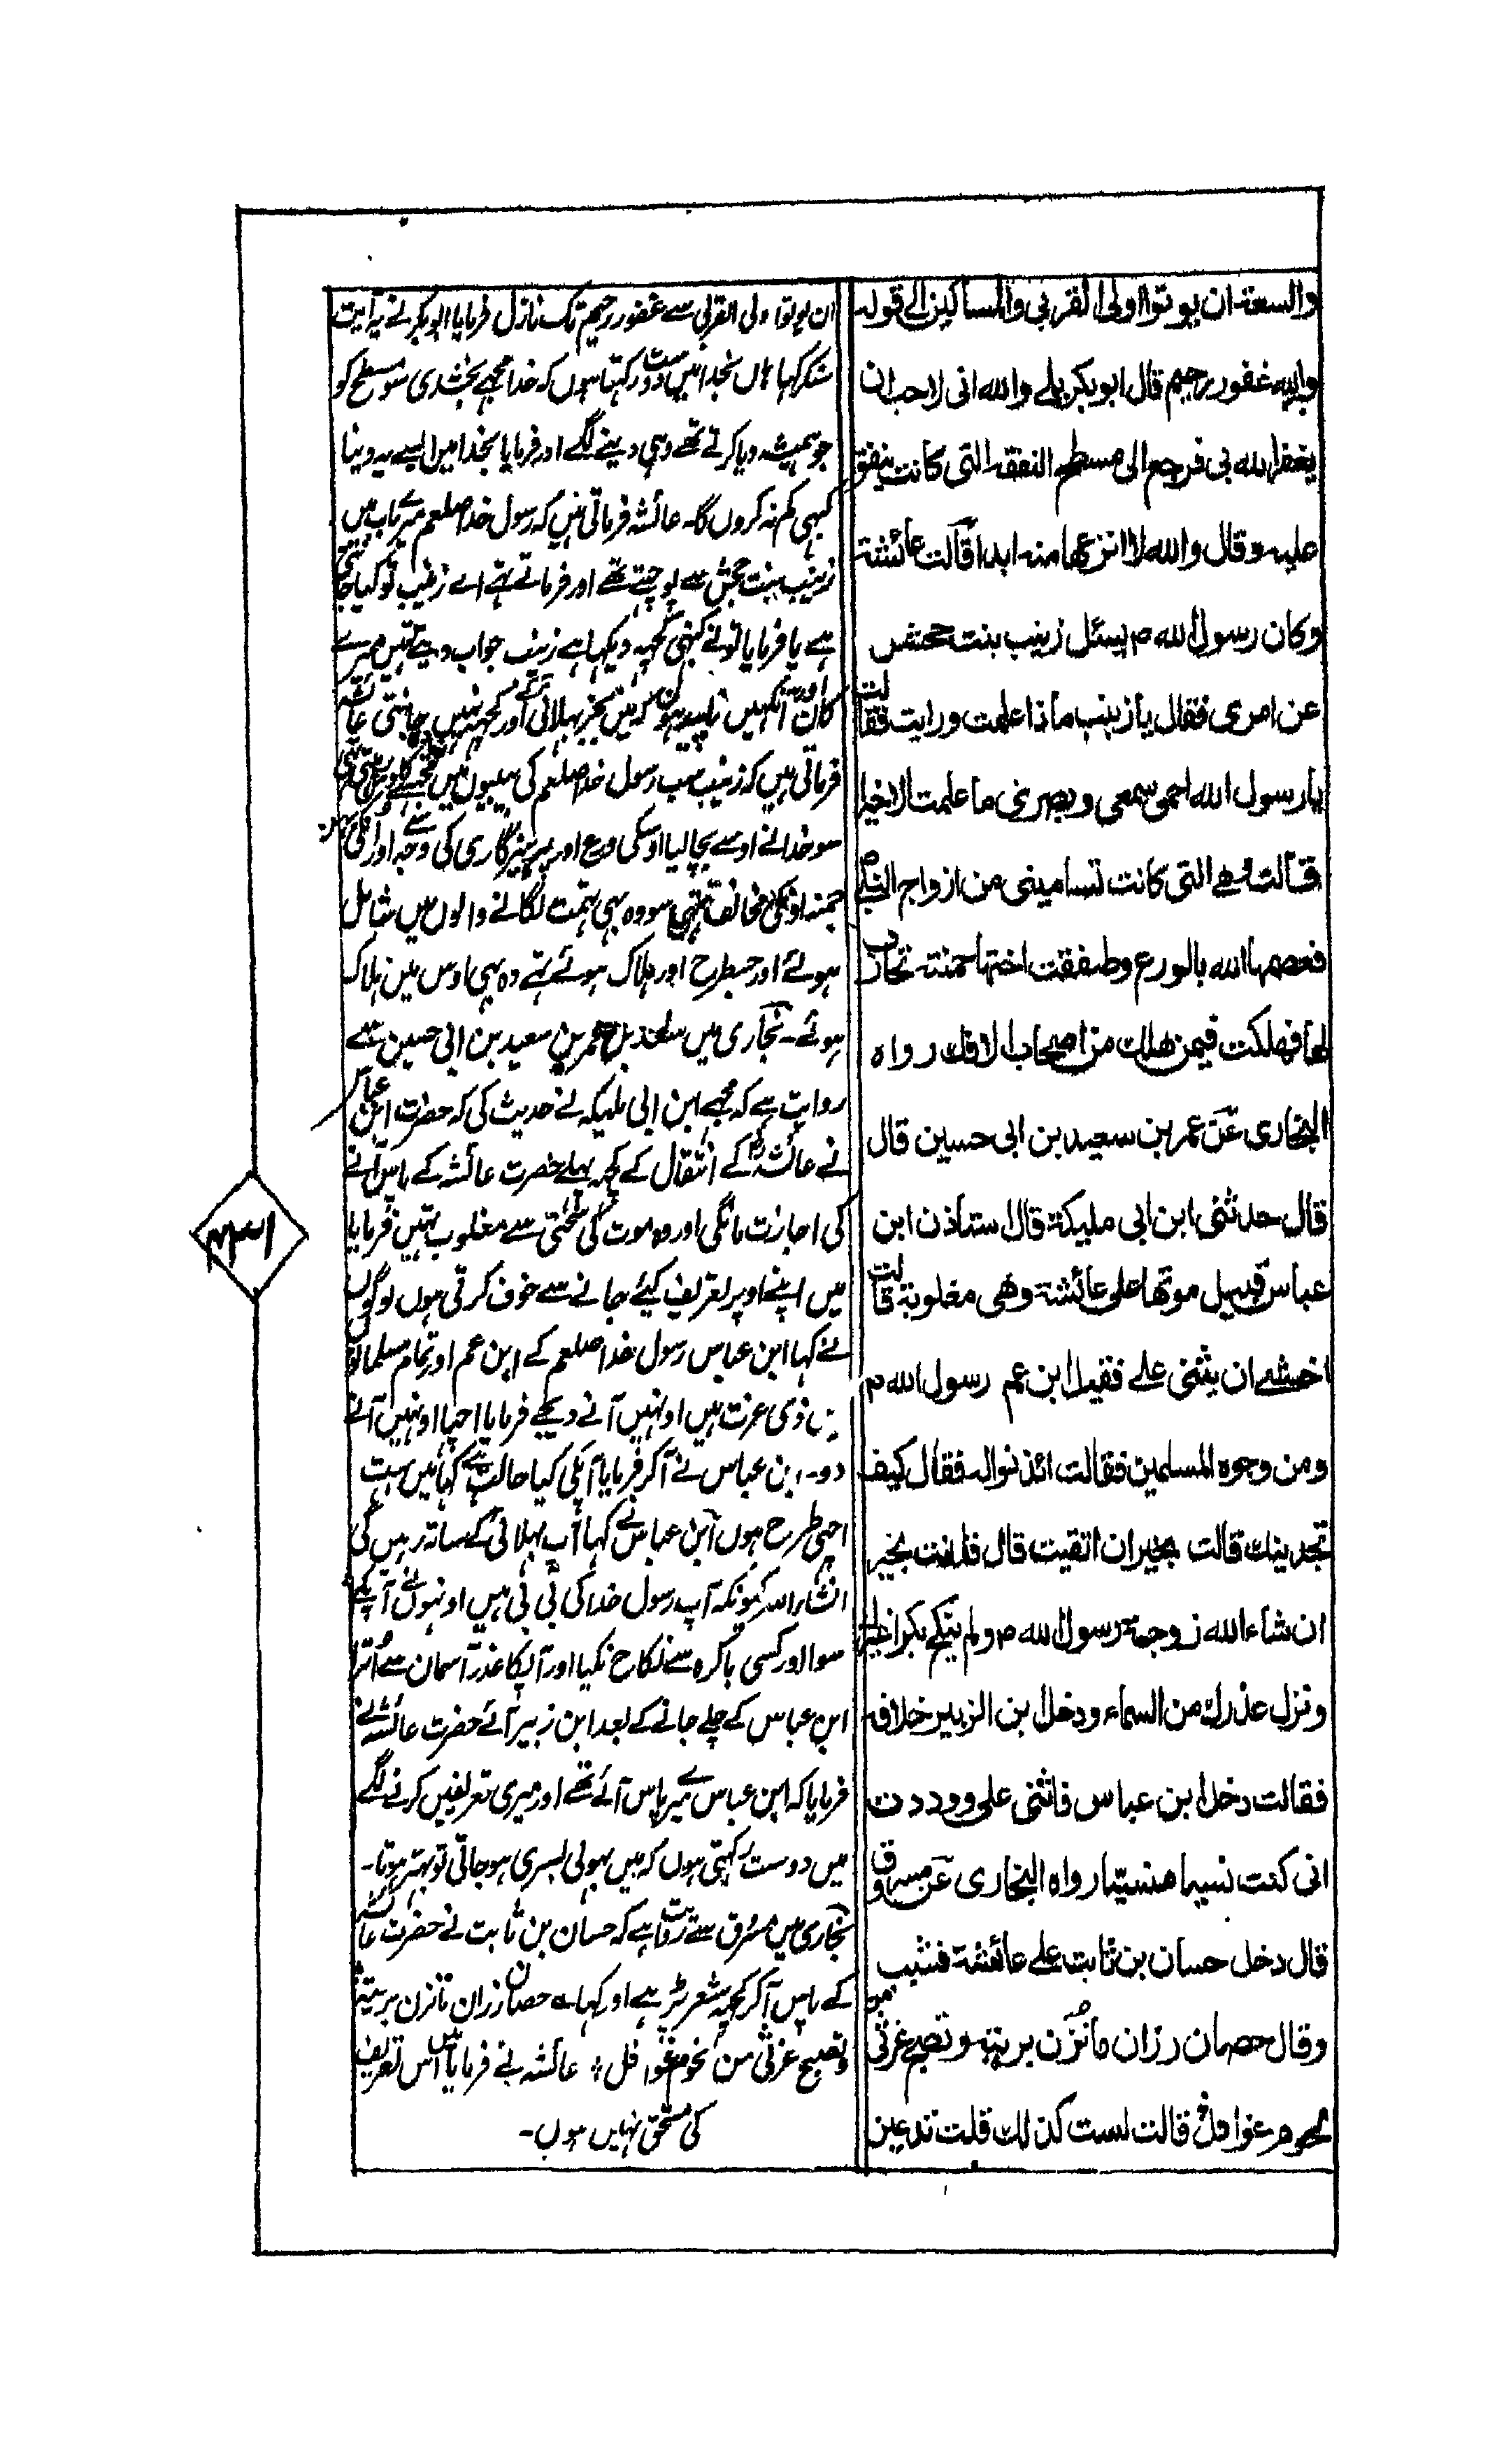 والسعة ان يوتوا اولی القربی والمساکین الی قوله
والله غفور رحیم قال ابو بکر بلے والله انی لاحب ان
یغفر الله لی فرجع الی مسطح النفقة التی کانت ینفق
علیه وقال والله لا انزعها منه ابدا قالت عائشة
وکان رسول الله م یسئل زینب بنت جحش
عن امری فقال یا زینب ماذا علمت ورایت فقالت
یا رسول الله احمی سمعی وبصری ما علمت الا خیرا
قالت وهے التی کانت تسامینی من ازواج النبی
فعصمها الله بالورع وطفقت اختها حمنة تحارب
لها فهلکت فیمن هلك من اصحاب الافك رواه
البخاری عن عمر بن سعید بن ابی حسین قال
قال حدثنی ابن ابی ملیکة قال استاذن ابن
عباس قبیل موتها علی عائشة وهی مغلوبة قالت
اخشے ان یثنی علے فقیل ابن عم رسول الله م
ومن وجوه المسلمین فقالت ائذنوا له فقال کیف
تجدینك قالت بخیر ان اتقیت قال فانت بخیر
ان شاء الله زوجة رسول الله م ولم ینکح بکرا غیرك
ونزل عذرك من السماء ودخل ابن الزبیر خلافه
فقالت دخل ابن عباس فاثنی علی ووددت
انی کنت نسیا منسیا رواه البخاری عن مسروق
قال دخل حسان بن ثابت علے عائشة فشبب
وقال حصان رزان ما تزن بریبة وتصبح غرثی من
لحوم غوافل قالت لست کذلك قلت تدعین
ان یوتوا اولی القربی سے غفور رحیم تک نازل فرمایا ابوبکر نے یہ آیت
سنکر کہا ہاں بخدا میں دوست رکہتا ہوں کہ خدا مجہے بخشدی سو مسطح کو
جو ہمیشہ دیا کرتے تھے وہی دینے لگے اور فرمایا بخدا میں اسے یہ دینا
کبہی کم نہ کروں گا۔ عائشہ فرماتی ہیں کہ رسول خدا صلعم میرے باب میں
زینب بنت جحش سے پوچہتے تھے اور فرماتے تہے اے زینب تو کیا جانتی
ہے یا فرمایا تو نے کبہی کچہہ دیکہا ہے زینب جواب دیتے تہیں میرے
کان اور آنکہیں ناپید ہوں کہ میں بجز بہلائی کے اور کچہہ نہیں جانتی عائشہ
فرماتی ہیں کہ زینب سب رسول خدا صلعم کی بیبیوں میں مجہسے
سو خدا نے اوسے بچالیا اوسکی ورع اور پرہیزگاری کی وجہ سے اور اونکی بہن
حمنہ اونکی مخالف تہی سو وہ بہی تہمت لگانے والوں میں شامل
ہوئے اور جسطرح اور ہلاک ہوئے تہے وہ بہی اوس میں ہلاک
ہوئے۔ بخاری میں عمر بن سعید بن ابی حسین سے
روایت ہے کہ مجہے ابن ابی ملیکہ نے حدیث کی کہ حضرت ابن عباس
نے عائشہ کے انتقال کے کچہہ پہلے حضرت عائشہ کے پاس آنے
کی اجازت مانگی اور وہ موت کی سختی سے مغلوب تہیں فرمایا
میں اپنے اوپر تعریف کیئے جانے سے خوف کرتی ہوں لوگوں
نے کہا ابن عباس رسول خدا صلعم کے ابن عم اور تمام مسلمانوں
میں ذی عزت ہیں اونہیں آنے دیجے فرمایا اچہا اونہیں آنے
دو۔ ابن عباس نے آکر فرمایا آپکی کیا حالت ہے کہا میں بہت
اچہی طرح ہوں ابن عباس نے کہا آپ بہلائی کے ساتہ رہیں گی
انشاء اللہ کیونکہ آپ رسول خدا کی بی بی ہیں اونہوں نے آپکے
سوا اور کسی باکرہ سے نکاح نکیا اور آپکا عذر آسمان سے اُترا
ابن عباس کے چلے جانے کے بعد ابن زبیر آئے حضرت عائشہ نے
فرمایا کہ ابن عباس میرے پاس آئے تھے اور میری تعریفیں کرنے لگے
میں دوست رکہتی ہوں کہ میں بہولی بسری ہوجاتی تو بہتر ہوتا۔
بخاری میں مسروق سے روایت ہے کہ حسان بن ثابت نے حضرت عائشہ
کے پاس آکر کچہہ شعر پڑہے اور کہا ؎ حصان رزان ما تزن بریبة
وتصبح غرثی من لحوم غوافل ؛ عائشہ نے فرمایا میں اس تعریف
کی مستحق نہیں ہوں۔